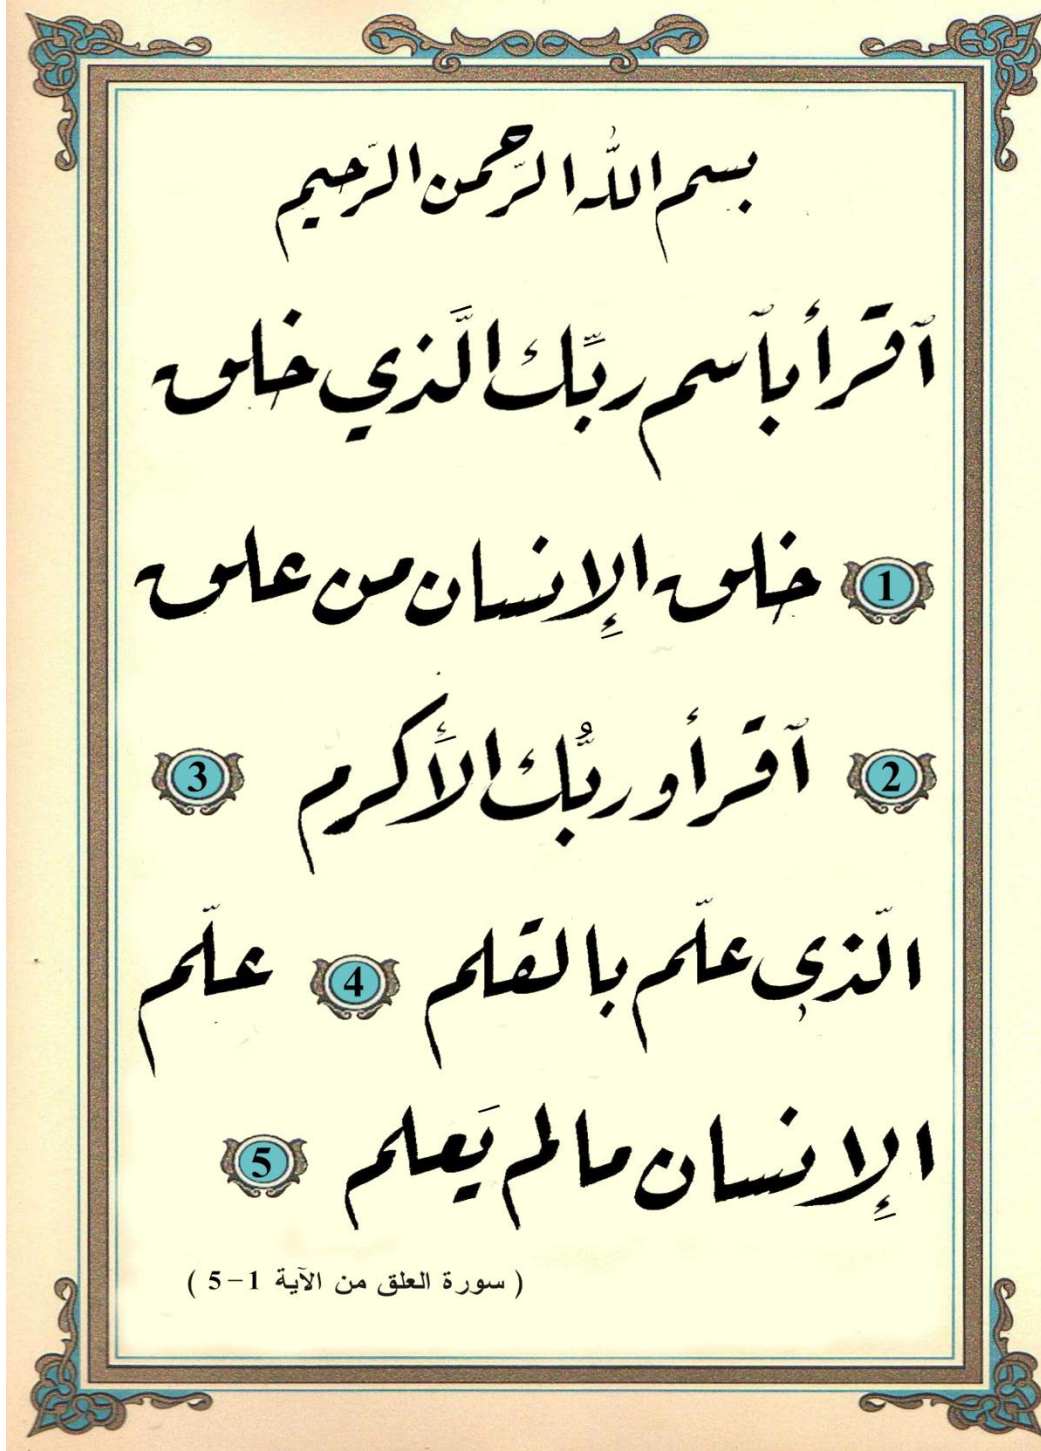 بسم اللّٰه الرّحمن الرّحيم
ٱقرأ بٱسم ربِّك الَّذي خلق
1 خلق الإنسان من علق
2 ٱقرأ وربُّك الأَكرم 3
الّذى علّم بالقلم 4 علّم
الإنسان ما لم يَعلم 5
( سورة العلق من الآية 1-5 )